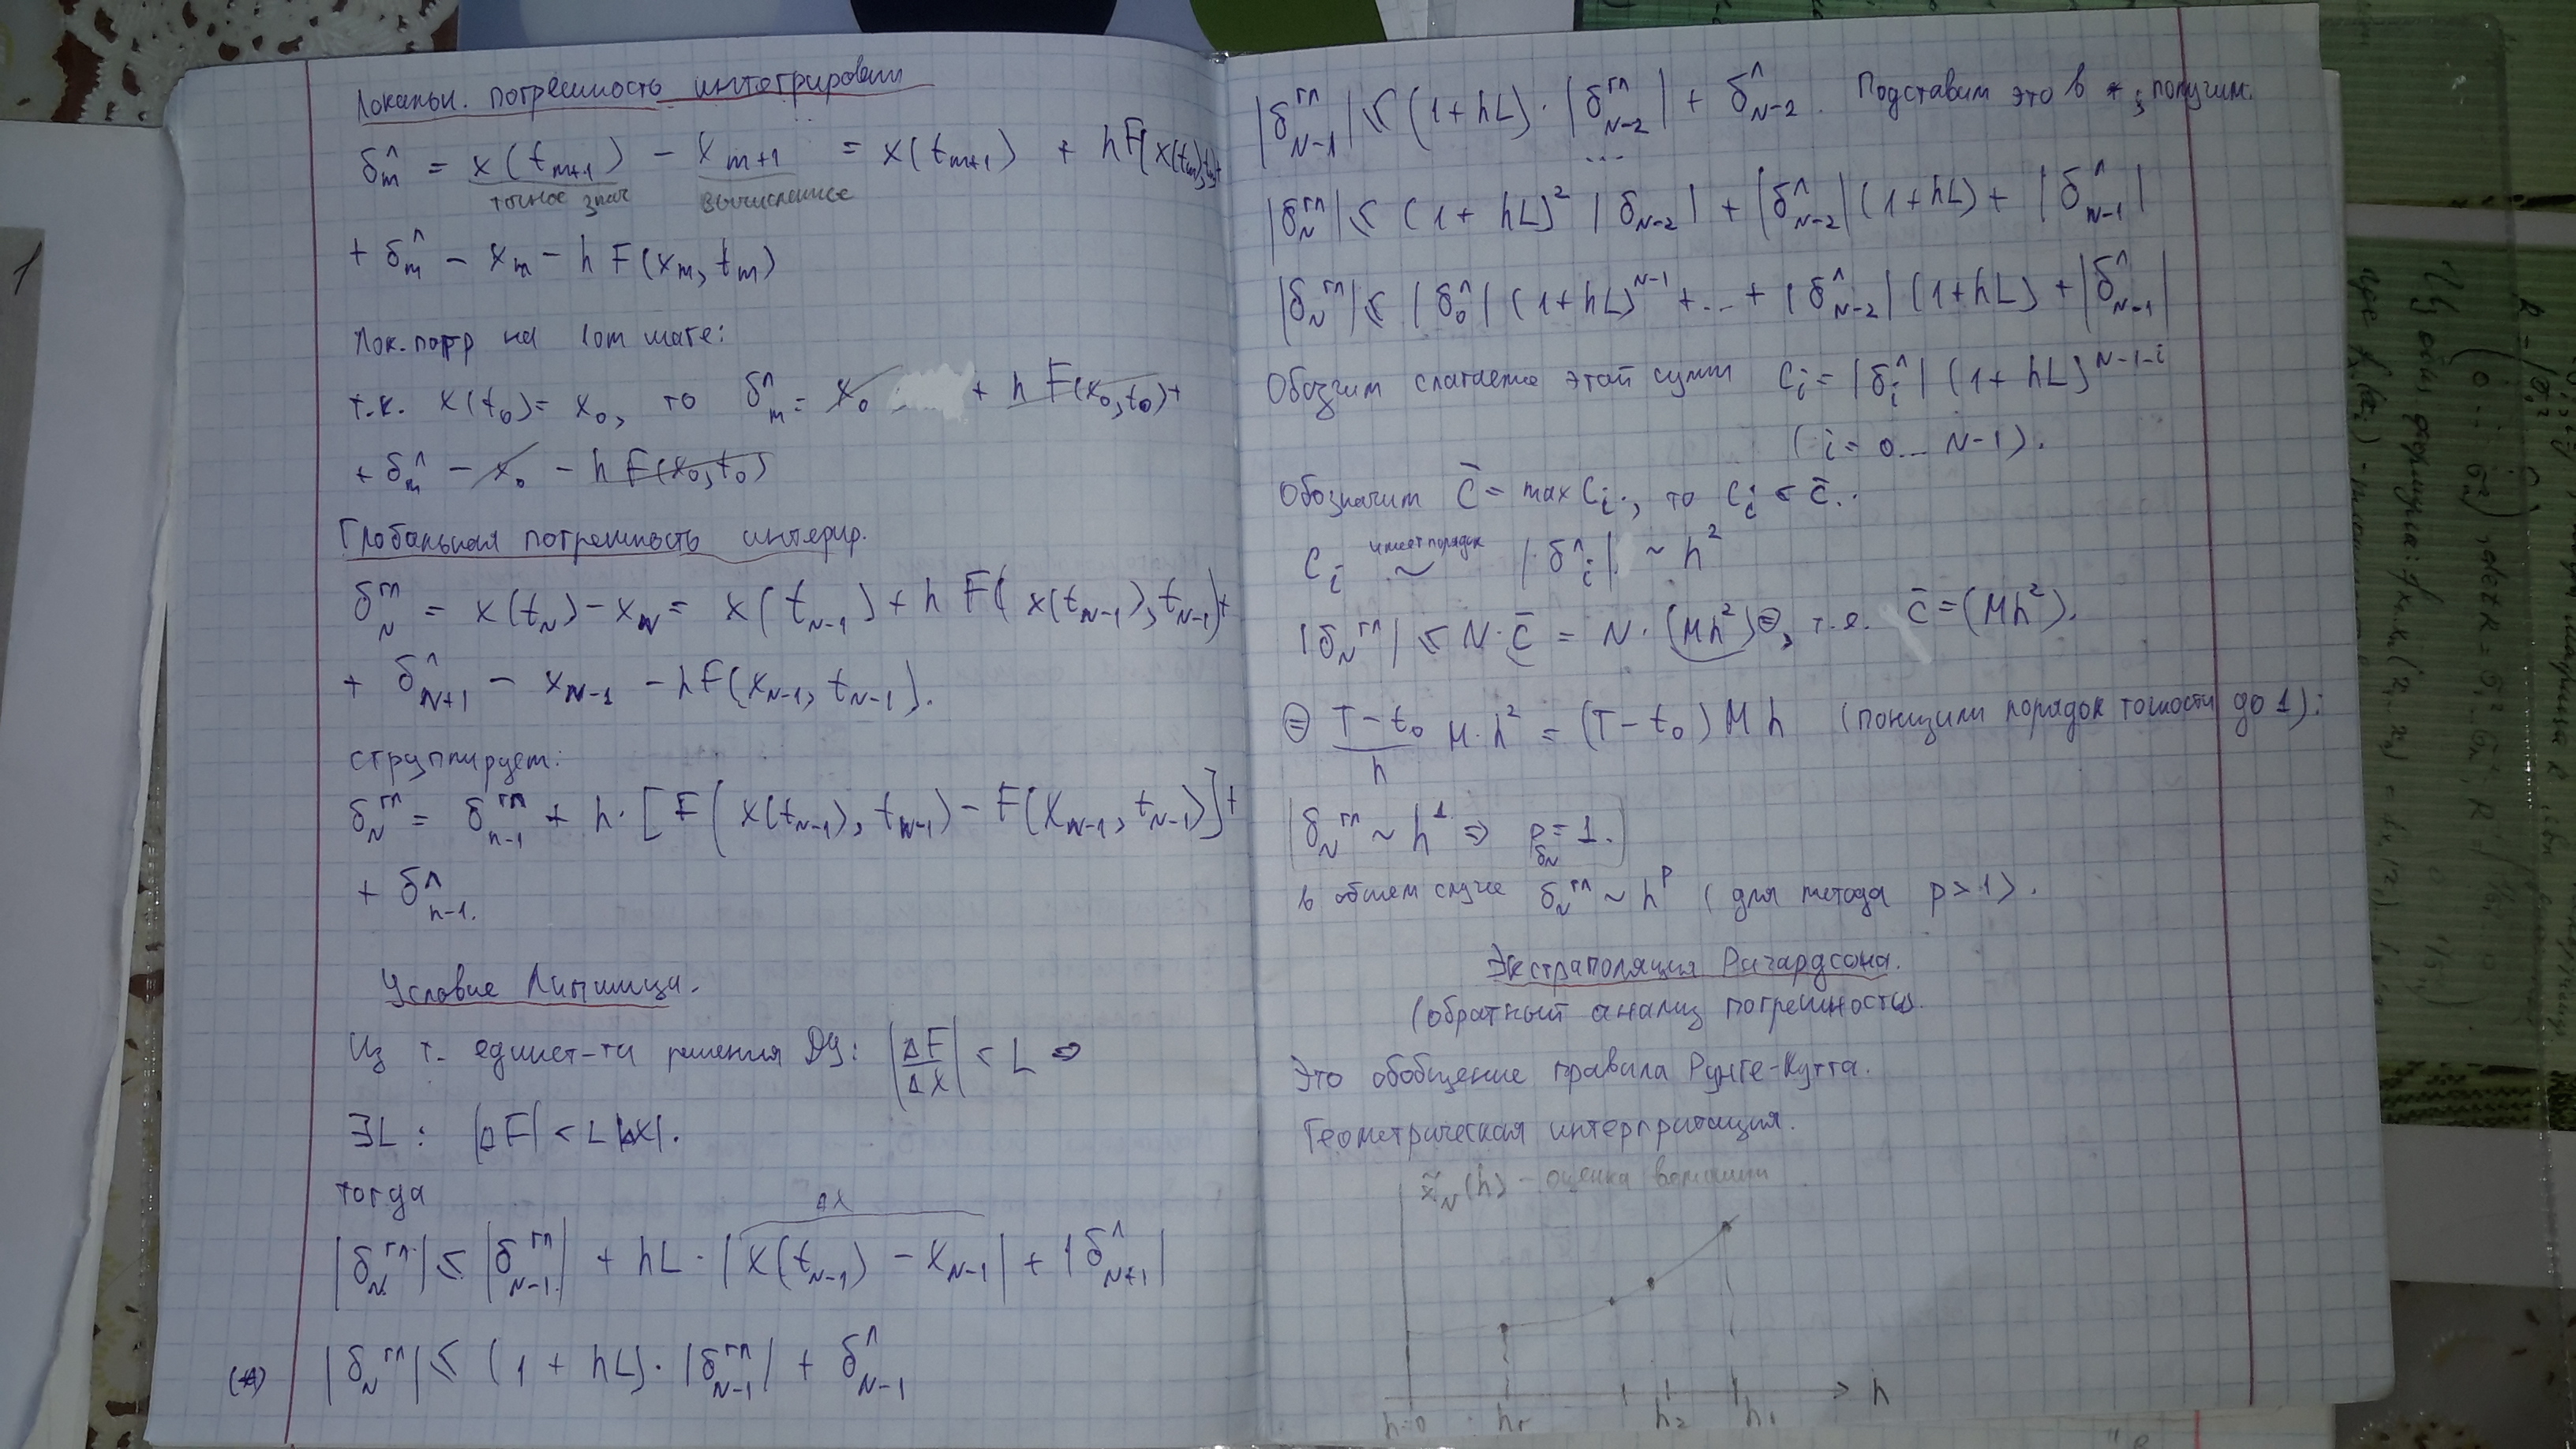 Локальн. погрешность интегрирован
δ_m^л = x(t_{m+1}) − x_{m+1} = x(t_{m+1}) + hF(x(t_m), t_m)+
точное знач вычисленное
+ δ_m^л − x_m − h F(x_m, t_m)
Лок. погр на 1ом шаге:
т.к. x(t_0) = x_0, то δ_m^л = x_0 + h F(x_0, t_0)+
+ δ_m^л − x_0 − h F(x_0, t_0)
Глобальная погрешность интегрир.
δ_N^гл = x(t_N) − x_N = x(t_{N−1}) + h F(x(t_{N−1}), t_{N−1})+
+ δ_{N+1}^л − x_{N−1} − hF(x_{N−1}, t_{N−1}).
сгруппирует:
δ_N^гл = δ_{n−1}^гл + h·[F(x(t_{N−1}), t_{N−1}) − F(x_{N−1}, t_{N−1})]+
+ δ_{n−1}^л.
Условие Липшица.
Из т. единст-ти решения ДУ: |ΔF/ΔX| < L ⇒
∃L : |ΔF| < L|ΔX|.
тогда
ΔX
|δ_N^гл| ≤ |δ_{N−1}^гл| + hL·|x(t_{N−1}) − x_{N−1}| + |δ_{N+1}^л|
(*) |δ_N^гл| ≤ (1 + hL)·|δ_{N−1}^гл| + δ_{N−1}^л
|δ_{N−1}^гл| ≤ (1 + hL)·|δ_{N−2}^гл| + δ_{N−2}^л. Подставим это в *, получим:
...
|δ_N^гл| ≤ (1 + hL)^2 |δ_{N−2}| + |δ_{N−2}^л|(1 + hL) + |δ_{N−1}^л|
|δ_N^гл| ≤ |δ_0^л| (1 + hL)^{N−1} + ... + |δ_{N−2}^л| (1 + hL) + |δ_{N−1}^л|
Обозчим слагаемые этой сумм C_i = |δ_i^л| (1 + hL)^{N−1−i}
(i = 0... N−1).
Обозначим C̄ = max C_i, то C_i < C̄.
C_i имеет порядок ~ |δ_i^л| ~ h^2
|δ_N^гл| ≤ N·C̄ = N·(Mh^2) ⊜, т.е. C̄ = (Mh^2).
⊜ (T − t_0)/h M·h^2 = (T − t_0) M h (понизили порядок точности до 1):
|δ_N^гл ~ h^1 ⇒ p_{δN} = 1.|
в общем случе δ_N^гл ~ h^p (для метода p > 1).
Экстраполяция Ричардсона.
(обратный анализ погрешности).
Это обобщение правила Рунге-Кутта.
Геометрическая интерпритация.
x̃_N(h) – оценка
h=0 h_r h_2 h_1 h